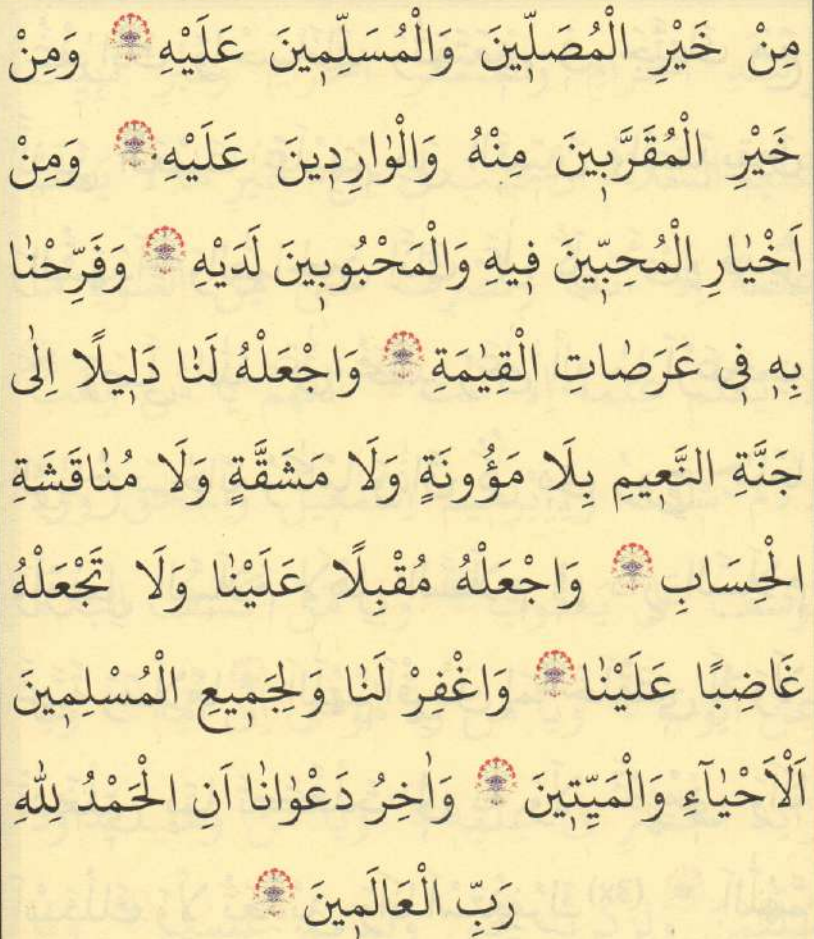 مِنْ خَيْرِ الْمُصَلّ۪ينَ وَالْمُسَلِّم۪ينَ عَلَيْهِ وَمِنْ
خَيْرِ الْمُقَرَّب۪ينَ مِنْهُ وَالْوٰارِد۪ينَ عَلَيْهِ وَمِنْ
اَخْيٰارِ الْمُحِبّ۪ينَ ف۪يهِ وَالْمَحْبُوب۪ينَ لَدَيْهِ وَفَرِّحْنٰا
بِه۪ ف۪ى عَرَصٰاتِ الْقِيٰمَةِ وَاجْعَلْهُ لَنٰا دَل۪يلًا اِلٰى
جَنَّةِ النَّع۪يمِ بِلَا مَؤُونَةٍ وَلَا مَشَقَّةٍ وَلَا مُنٰاقَشَةِ
الْحِسَابِ وَاجْعَلْهُ مُقْبِلًا عَلَيْنٰا وَلَا تَجْعَلْهُ
غَاضِبًا عَلَيْنٰا وَاغْفِرْ لَنٰا وَلِجَم۪يعِ الْمُسْلِم۪ينَ
اَلْاَحْيٰٓاءِ وَالْمَيِّت۪ينَ وَاٰخِرُ دَعْوٰانٰا اَنِ الْحَمْدُ لِلّٰهِ
رَبِّ الْعَالَم۪ينَ